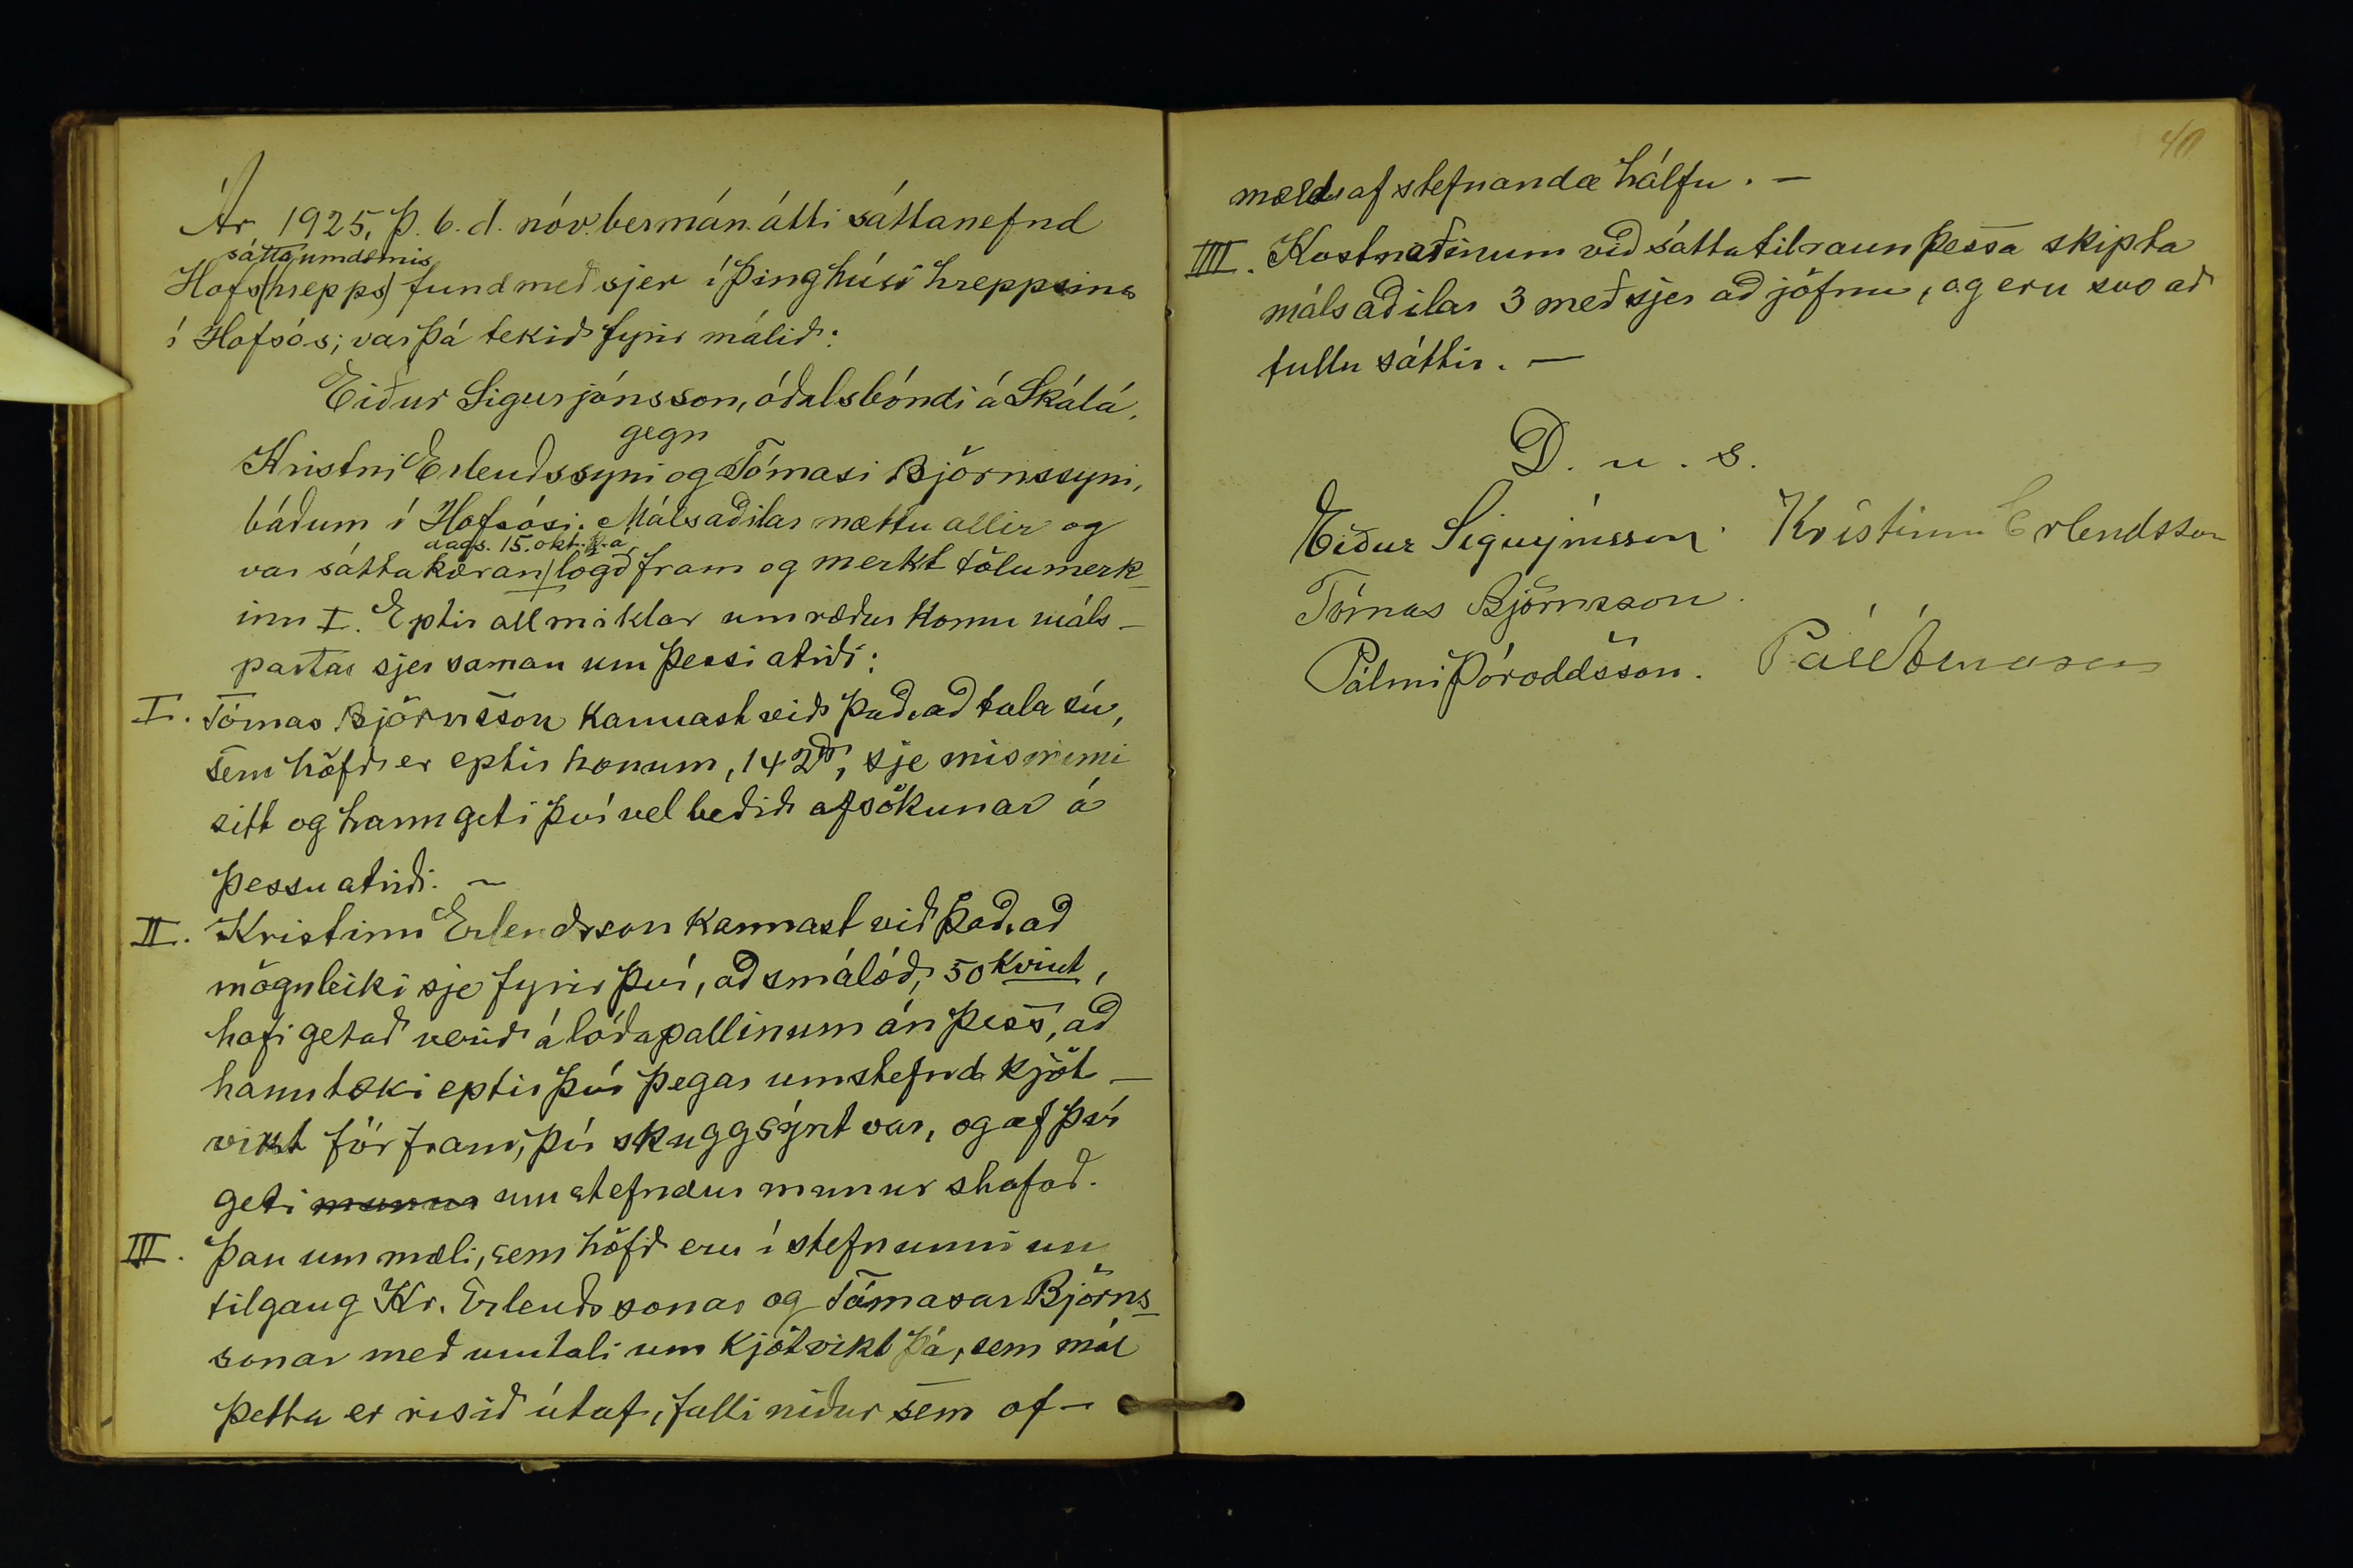 Ár 1925, þ. 6. d. nóv.bermán. átti sáttanefnd
sáttaumdæmis
Hofs(hrepps) fund með sjer í þinghúsi hreppsins
í Hofsós; var þá tekið fyrir málið:
Eiður Sigurjónsson, óðalsbóndi á Skálá,
gegn
Kristni Erlendssyni og Tómasi Björnssyni,
báðum í Hofsósi. Málsaðilar mættu allir og
dags. 15. okt. þ.a.
var sáttakæran/lögð fram og merkt tölumerk-
inu I. Eptir allmiklar umræður komu máls-
partar sjer saman um þessi atriði:
I. Tómas Björnsson kannast við það, að tala sú,
sem höfð er eptir honum, 142, sje misminni
sitt og hann geti því vel beðið afsökunar á
þessu atriði. –
II. Kristinn Erlendsson kannast við það, að
möguleiki sje fyrir því, að smálóð, 50 kvint,
hafi getað verið á lóðapallinum án þess, að
hann tæki eptir því þegar umstefnd kjöt-
vikt fór fram, því skuggsýnt var, og af því
geti munur umstefndur munur skafað.
III. Þau ummæli, sem höfð eru í stefnunni um
tilgang Kr. Erlendssonar og Tómasar Björns-
sonar með umtali um kjötvikt þá, sem mál
þetta er risið útaf, falli niður sem of-
40
mælt af stefnanda hálfu. –
IIII. Kostnaðinum við sáttatilraun þessa skipta
málsaðilar 3 með sjer að jöfnu, og eru svo að
fullu sáttir. –
D. u. s.
Eiður Sigurjónsson. Kristinn Erlendsson
Tómas Björnsson.
Pálmi Þóroddsson.